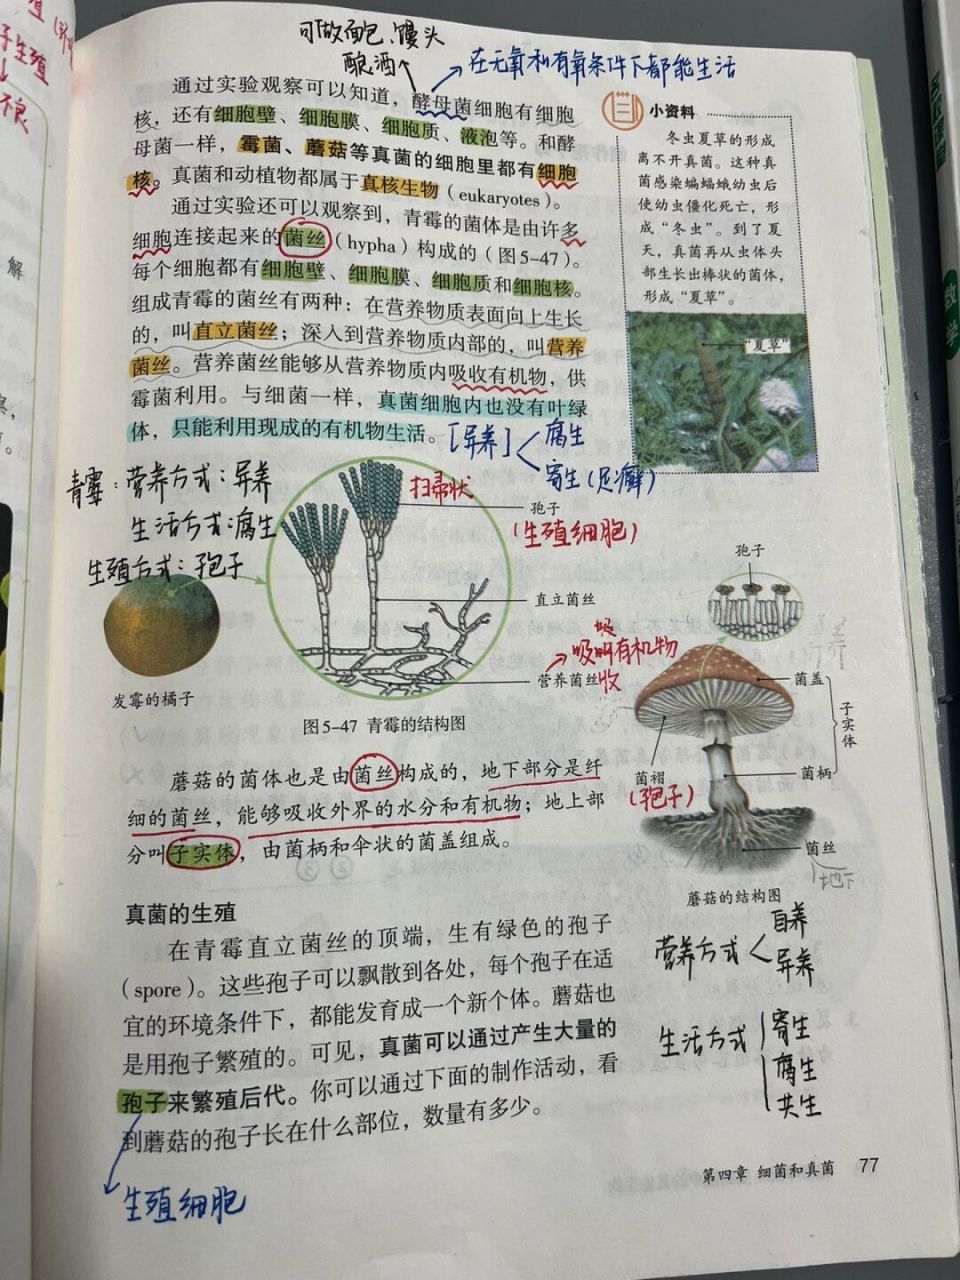 可做面包、馒头
酿酒
在无氧和有氧条件下都能生活
通过实验观察可以知道，酵母菌细胞有细胞
核，还有细胞壁、细胞膜、细胞质、液泡等。和酵
母菌一样，霉菌、蘑菇等真菌的细胞里都有细胞
核。真菌和动植物都属于真核生物（eukaryotes）。
通过实验还可以观察到，青霉的菌体是由许多
细胞连接起来的菌丝（hypha）构成的（图5-47）。
每个细胞都有细胞壁、细胞膜、细胞质和细胞核。
组成青霉的菌丝有两种：在营养物质表面向上生长
的，叫直立菌丝；深入到营养物质内部的，叫营养
菌丝。营养菌丝能够从营养物质内吸收有机物，供
霉菌利用。与细菌一样，真菌细胞内也没有叶绿
体，只能利用现成的有机物生活。
[异养]
腐生
寄生(足癣)
小资料
冬虫夏草的形成
离不开真菌。这种真
菌感染蝙蝠蛾幼虫后
使幼虫僵化死亡，形
成“冬虫”。到了夏
天，真菌再从虫体头
部生长出棒状的菌体，
形成“夏草”。
“夏草”
青霉：营养方式：异养
生活方式：腐生
生殖方式：孢子
扫帚状
孢子
(生殖细胞)
直立菌丝
吸收有机物
营养菌丝
发霉的橘子
图5-47 青霉的结构图
孢子
菌盖
子实体
菌褶
(孢子)
菌柄
菌丝
地下
蘑菇的结构图
蘑菇的菌体也是由菌丝构成的，地下部分是纤
细的菌丝，能够吸收外界的水分和有机物；地上部
分叫子实体，由菌柄和伞状的菌盖组成。
真菌的生殖
在青霉直立菌丝的顶端，生有绿色的孢子
（spore）。这些孢子可以飘散到各处，每个孢子在适
宜的环境条件下，都能发育成一个新个体。蘑菇也
是用孢子繁殖的。可见，真菌可以通过产生大量的
孢子来繁殖后代。你可以通过下面的制作活动，看
到蘑菇的孢子长在什么部位，数量有多少。
生殖细胞
营养方式
自养
异养
生活方式
寄生
腐生
共生
第四章 细菌和真菌 77
数学